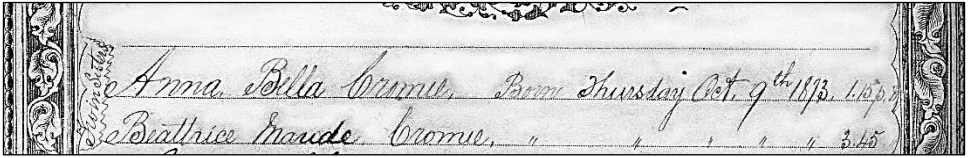 Twin Sisters
Anna Bella Cromie, Born Thursday Oct. 9th 1873, 1.15 p.m
Beattrice Maude Cromie, " " " " " 3.45